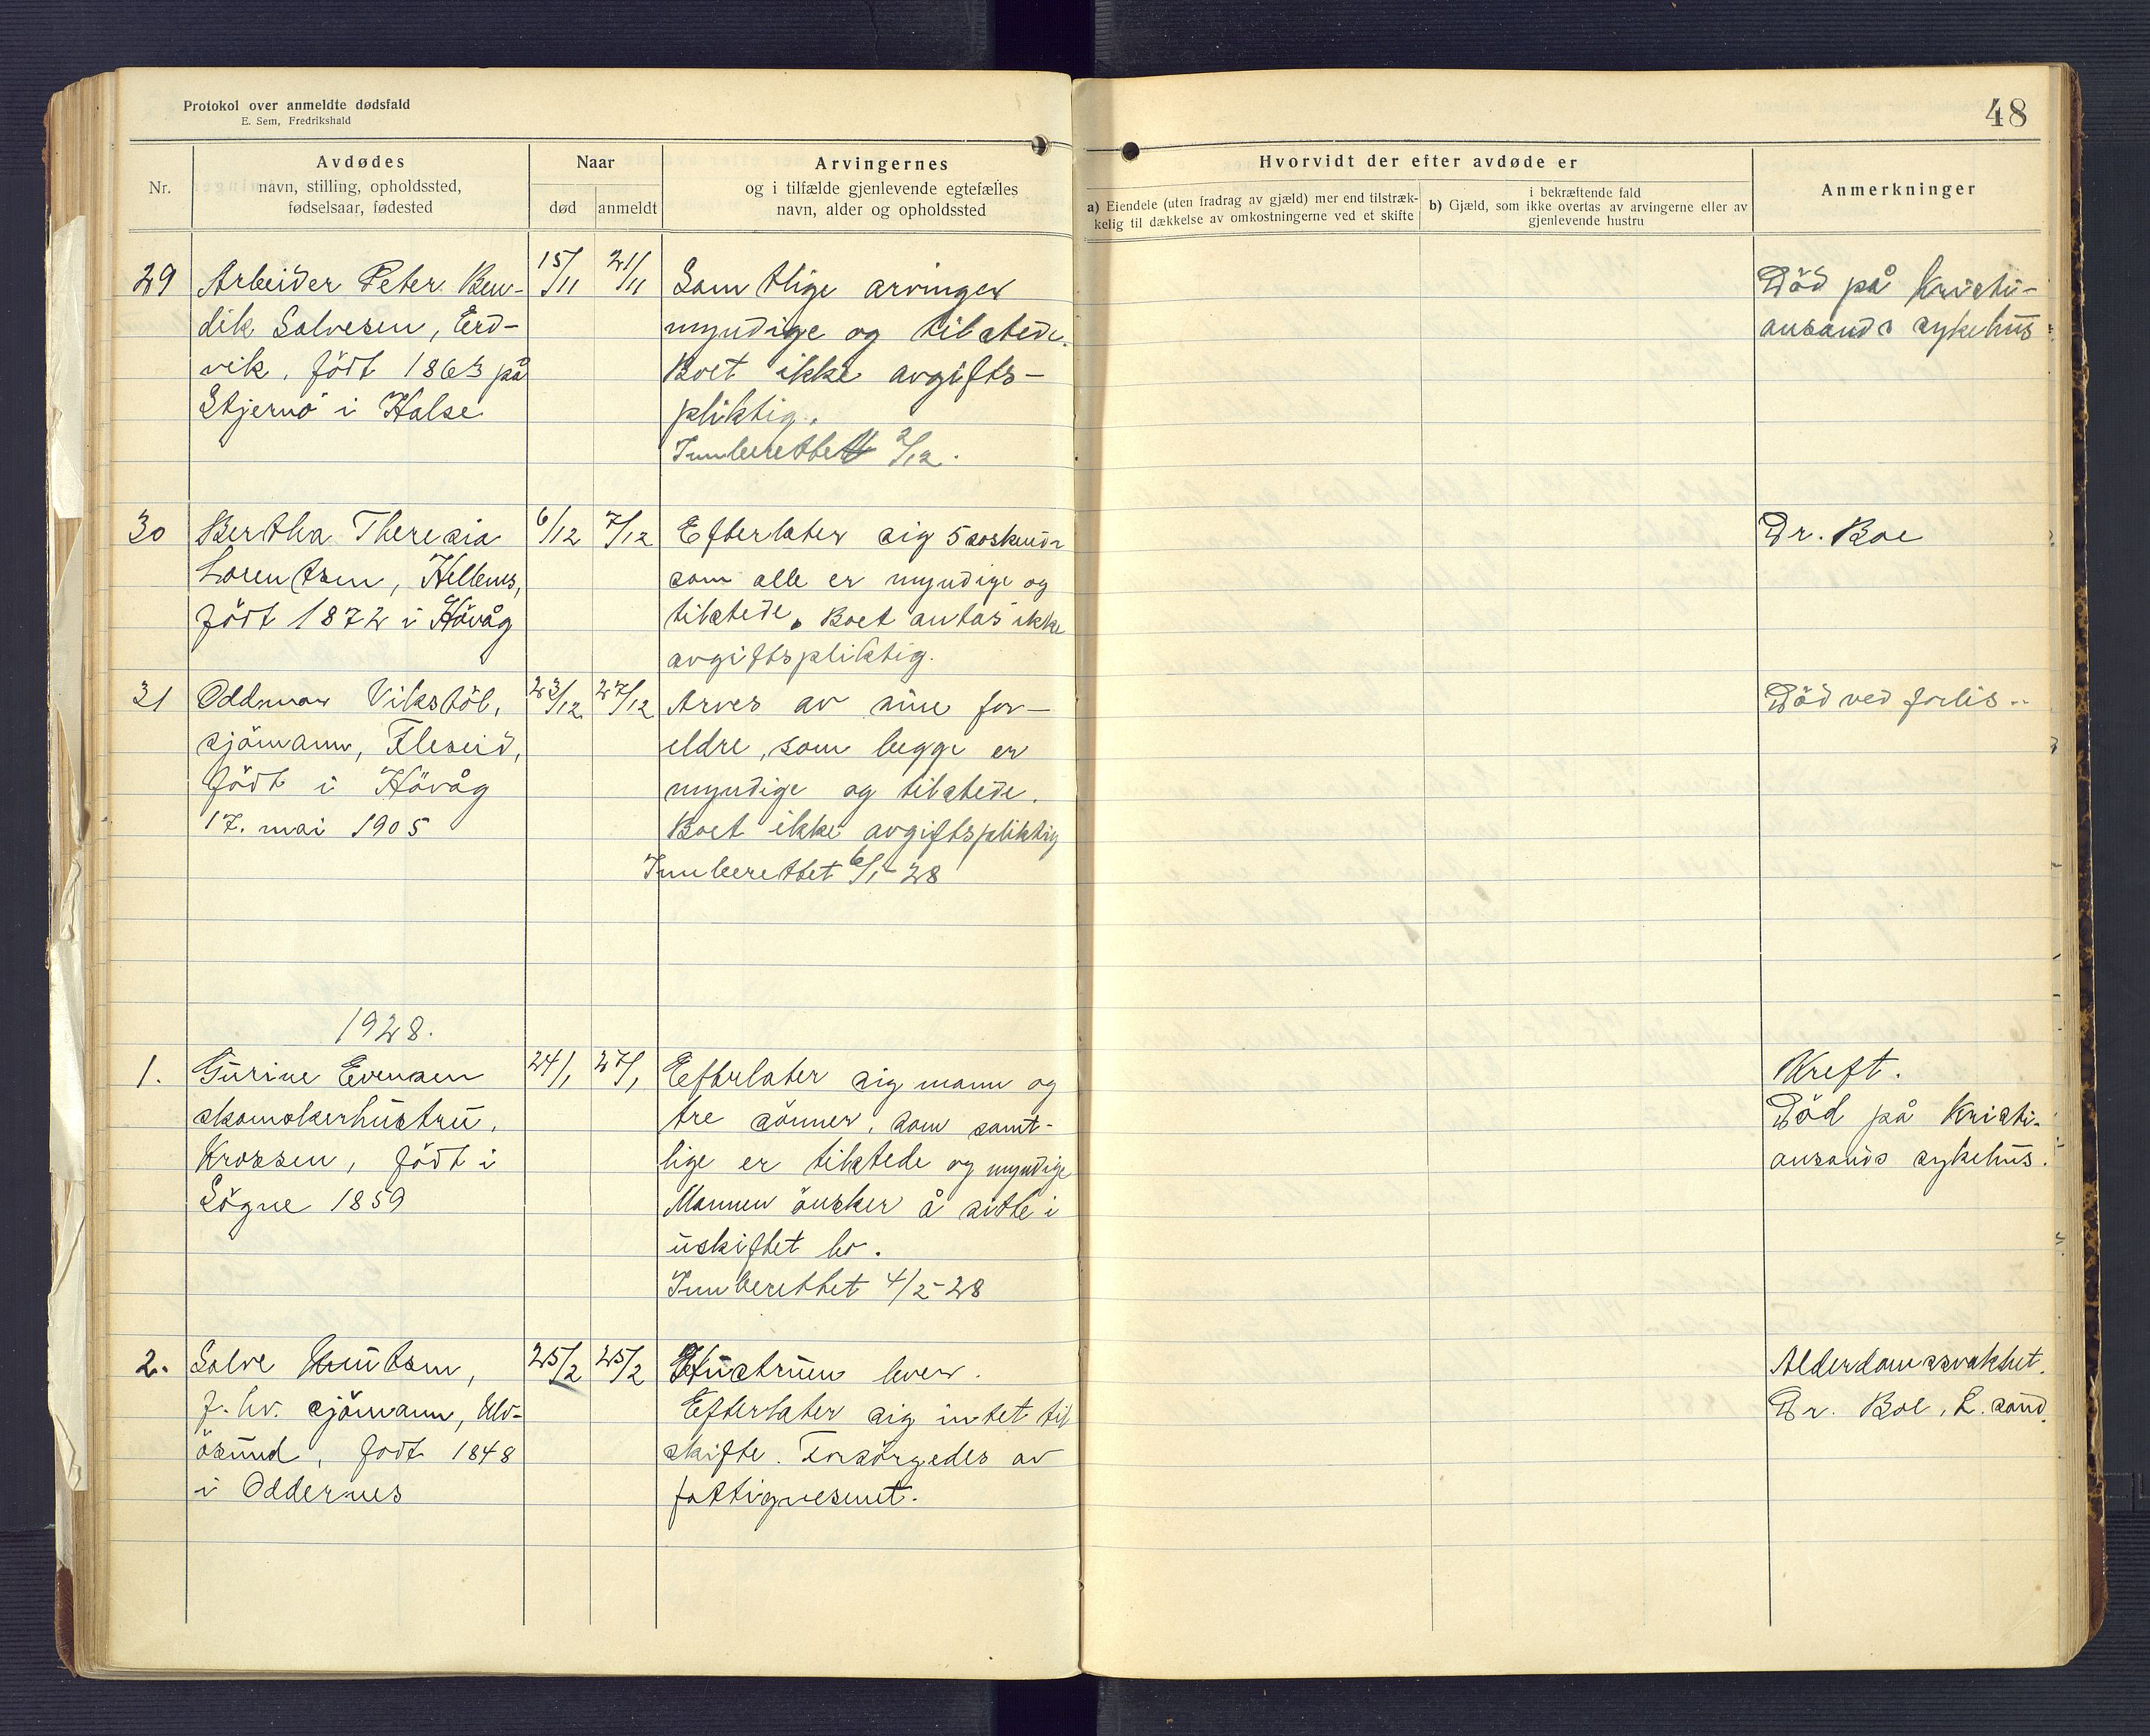 Protokol over anmeldte dødsfald
E. Sem, Fredrikshald
48
Nr.
Avdødes
navn, stilling, opholdssted,
fødselsaar, fødested
Naar
død
anmeldt
Arvingernes
og i tilfælde gjenlevende egtefælles
navn, alder og opholdssted
Hvorvidt der efter avdøde er
a) Eiendele (uten fradrag av gjæld) mer end tilstræk-
kelig til dækkelse av omkostningerne ved et skifte
i bekræftende fald
b) Gjæld, som ikke overtas av arvingerne eller av
gjenlevende hustru
Anmerkninger
29
Arbeider Peter Ben-
dik Salvesen, Erd-
vik, födt 1863 på
Skjernö i Halse
15/11
21/11
Samtlige arvinger
myndige og tilstede.
Boet ikke avgifts-
pliktig.
Innberettet 2/12.
Död på Kristi-
ansands sykehus
30
Bertha Theresia
Lorentsen, Hellenes,
födt 1872 i Hövåg
6/12
7/12
Efterlater sig 5 söskende
som alle er myndige og
tilstede. Boet antas ikke
avgiftspliktig.
Dr. Boe
31
Oddmar Vikstöl,
sjömann, Fleseid,
födt i Hövåg
17. mai 1905
23/12
27/12
Arves av sine for-
eldre, som begge er
myndige og tilstede.
Boet ikke avgiftspliktig
Innberettet 6/1-28
Död ved forlis
1928.
1.
Gurine Evensen
skomakerhustru,
Krossen, födt i
Sögne 1859
24/1
27/1
Efterlater sig mann og
tre sönner, som samt-
lige er tilstede og myndige
Mannen önsker å sitte i
uskiftet bo.
Innberettet 4/2-28
Kreft.
Död på Kristi-
ansands sykehus.
2.
Salve Knutsen,
f. hv. sjömann, Ulv-
ösund, födt 1848
i Oddernes
25/2
25/2
Hustruen lever.
Efterlater sig intet til
skifte. Forsörgedes av
fattigvesenet.
Alderdomssvakhet.
Dr. Boe, L.sand.